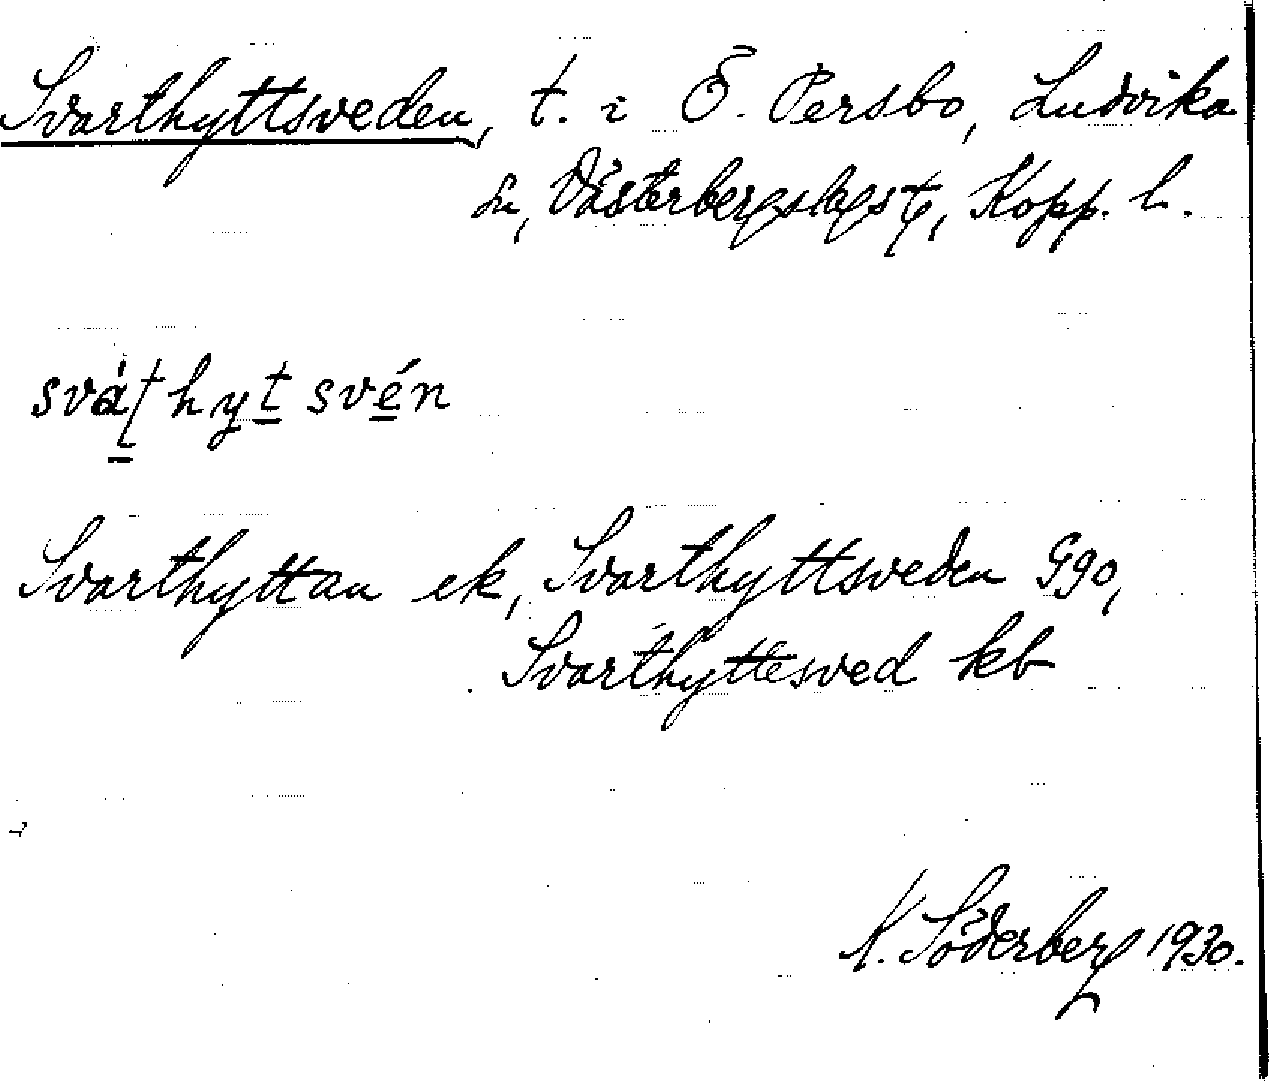 Svarthyttsveden, t. i Ö. Persbo, Ludvika
sn, Västerbergslags tg, Kopp. l.
sváṭhyt svén
Svarthyttan ek, Svarthyttsveden Ggo,
Svarthyttesved kb
K. Söderberg 1930.